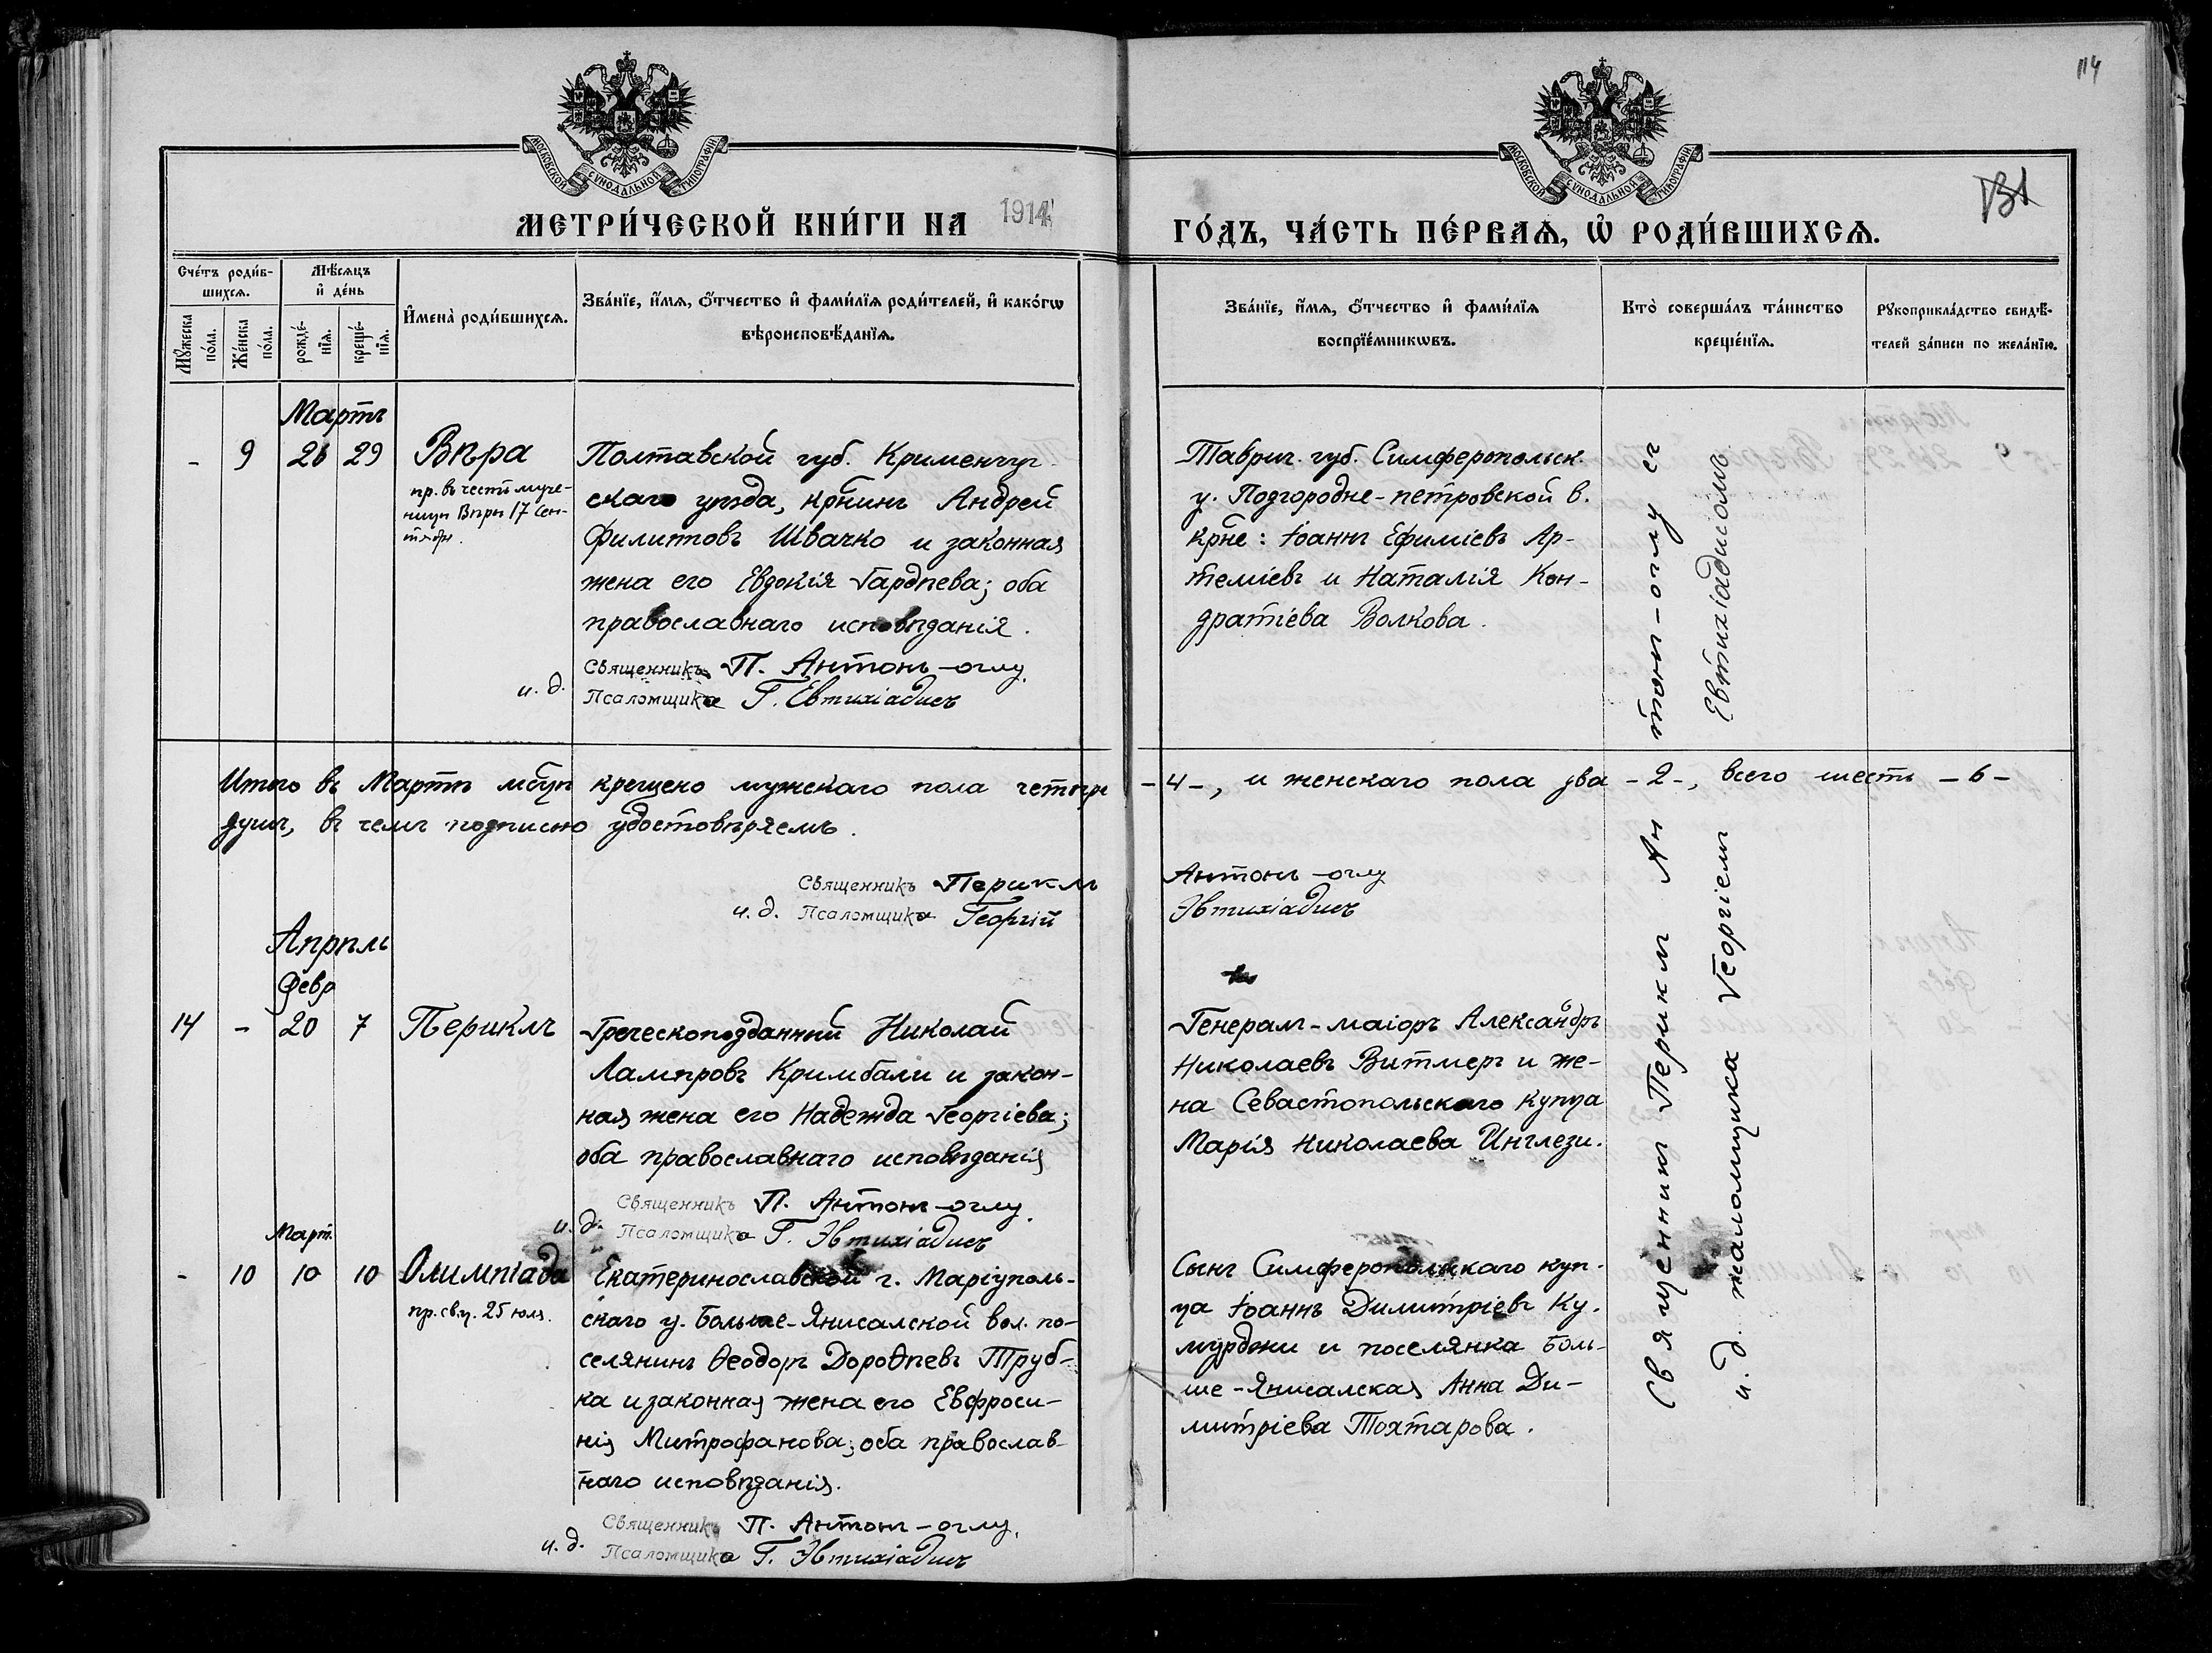 114
131
МОСКОВСКОЙ СУНОДАЛЬНОЙ ТИПОГРАФІИ
МОСКОВСКОЙ СУНОДАЛЬНОЙ ТИПОГРАФІИ
МЕТРИ́ЧЕСКОЙ КНИ́ГИ НА 1914 ГО́ДЪ, ЧА́СТЬ ПЕ́РВАѦ, Ѡ РОДИ́ВШИХСѦ.
Сче́тъ роди́в-
шихсѧ.
Мꙋжеска
по́ла.
Же́нска
по́ла.
Мѣ́сѧцъ
и де́нь
рожде́-
нїѧ.
креще́-
нїѧ.
Имена̀ роди́вшихсѧ.
Зва́нїе, и́мѧ, ѻ́тчество и фами́лїѧ роди́телей, и како́гѡ
вѣроисповѣ́данїѧ.
Зва́нїе, и́мѧ, ѻ́тчество и фами́лїѧ
воспрїе́мникѡвъ.
Кто̀ соверша́лъ та́инство
креще́нїѧ.
Рꙋкоприкла́дство свидѣ́-
телей за́писи по жела́нїю.
Мартъ
- 9 26 29 Вѣра
пр. въ честь муче-
ницы Вѣры 17 Сен-
тября.
Полтавской губ. Кременчуг-
скаго уѣзда, крнинъ Андрей
Филипповъ Швачко и законная
жена его Евдокія Гордѣева; оба
православнаго исповѣданія.
Священникъ П. Антонъ-оглу.
и. д. Псаломщика Г. Евтихіадисъ
Таврич. губ. Симферопольск.
у. Подгородне-петровской в.
крне: Іоаннъ Ефиміевъ Ар-
теміевъ и Наталія Кон-
дратіева Волкова.
Итого въ Мартѣ мсцѣ крещено мужскаго пола четыре -4-, и женскаго пола два -2-, всего шесть -6-
душъ, въ чемъ подписью удостовѣряемъ.
Священникъ Периклъ Антонъ-оглу
и. д. Псаломщика Георгій Эвтихіадисъ
Апрѣль
Февр
14 - 20 7 Периклъ
Греческоподданный Николай
Лампровъ Кримбали и закон-
ная жена его Надежда Георгіева;
оба православнаго исповѣданія
Священникъ П. Антонъ-оглу.
и. д. Псаломщика Г. Эвтихіадисъ
Генералъ-маіоръ Александръ
Николаевъ Витмеръ и же-
на Севастопольскаго купца
Марія Николаева Инглези.
Март.
- 10 10 10 Олимпіада
пр. св. ц. 25 юля.
Екатеринославской г. Маріуполь-
скаго у. Больше-Янисалской вол. по-
селянинъ Ѳеодоръ Дороѳѣевъ Труб-
ка и законная жена его Евфроси-
нія Митрофанова; оба православ-
наго исповѣданія.
Священникъ П. Антонъ-оглу.
и. д. Псаломщика Г. Эвтихіадисъ
Сынъ Симферопольскаго куп-
ца Іоаннъ Димитріевъ Ку-
мурджи и поселянка Боль-
ше-Янисалская Анна Ди-
митріева Тохтарова.
Священникъ Периклъ Антонъ-оглу съ
и. д. псаломщика Георгіемъ Евтихіадисомъ